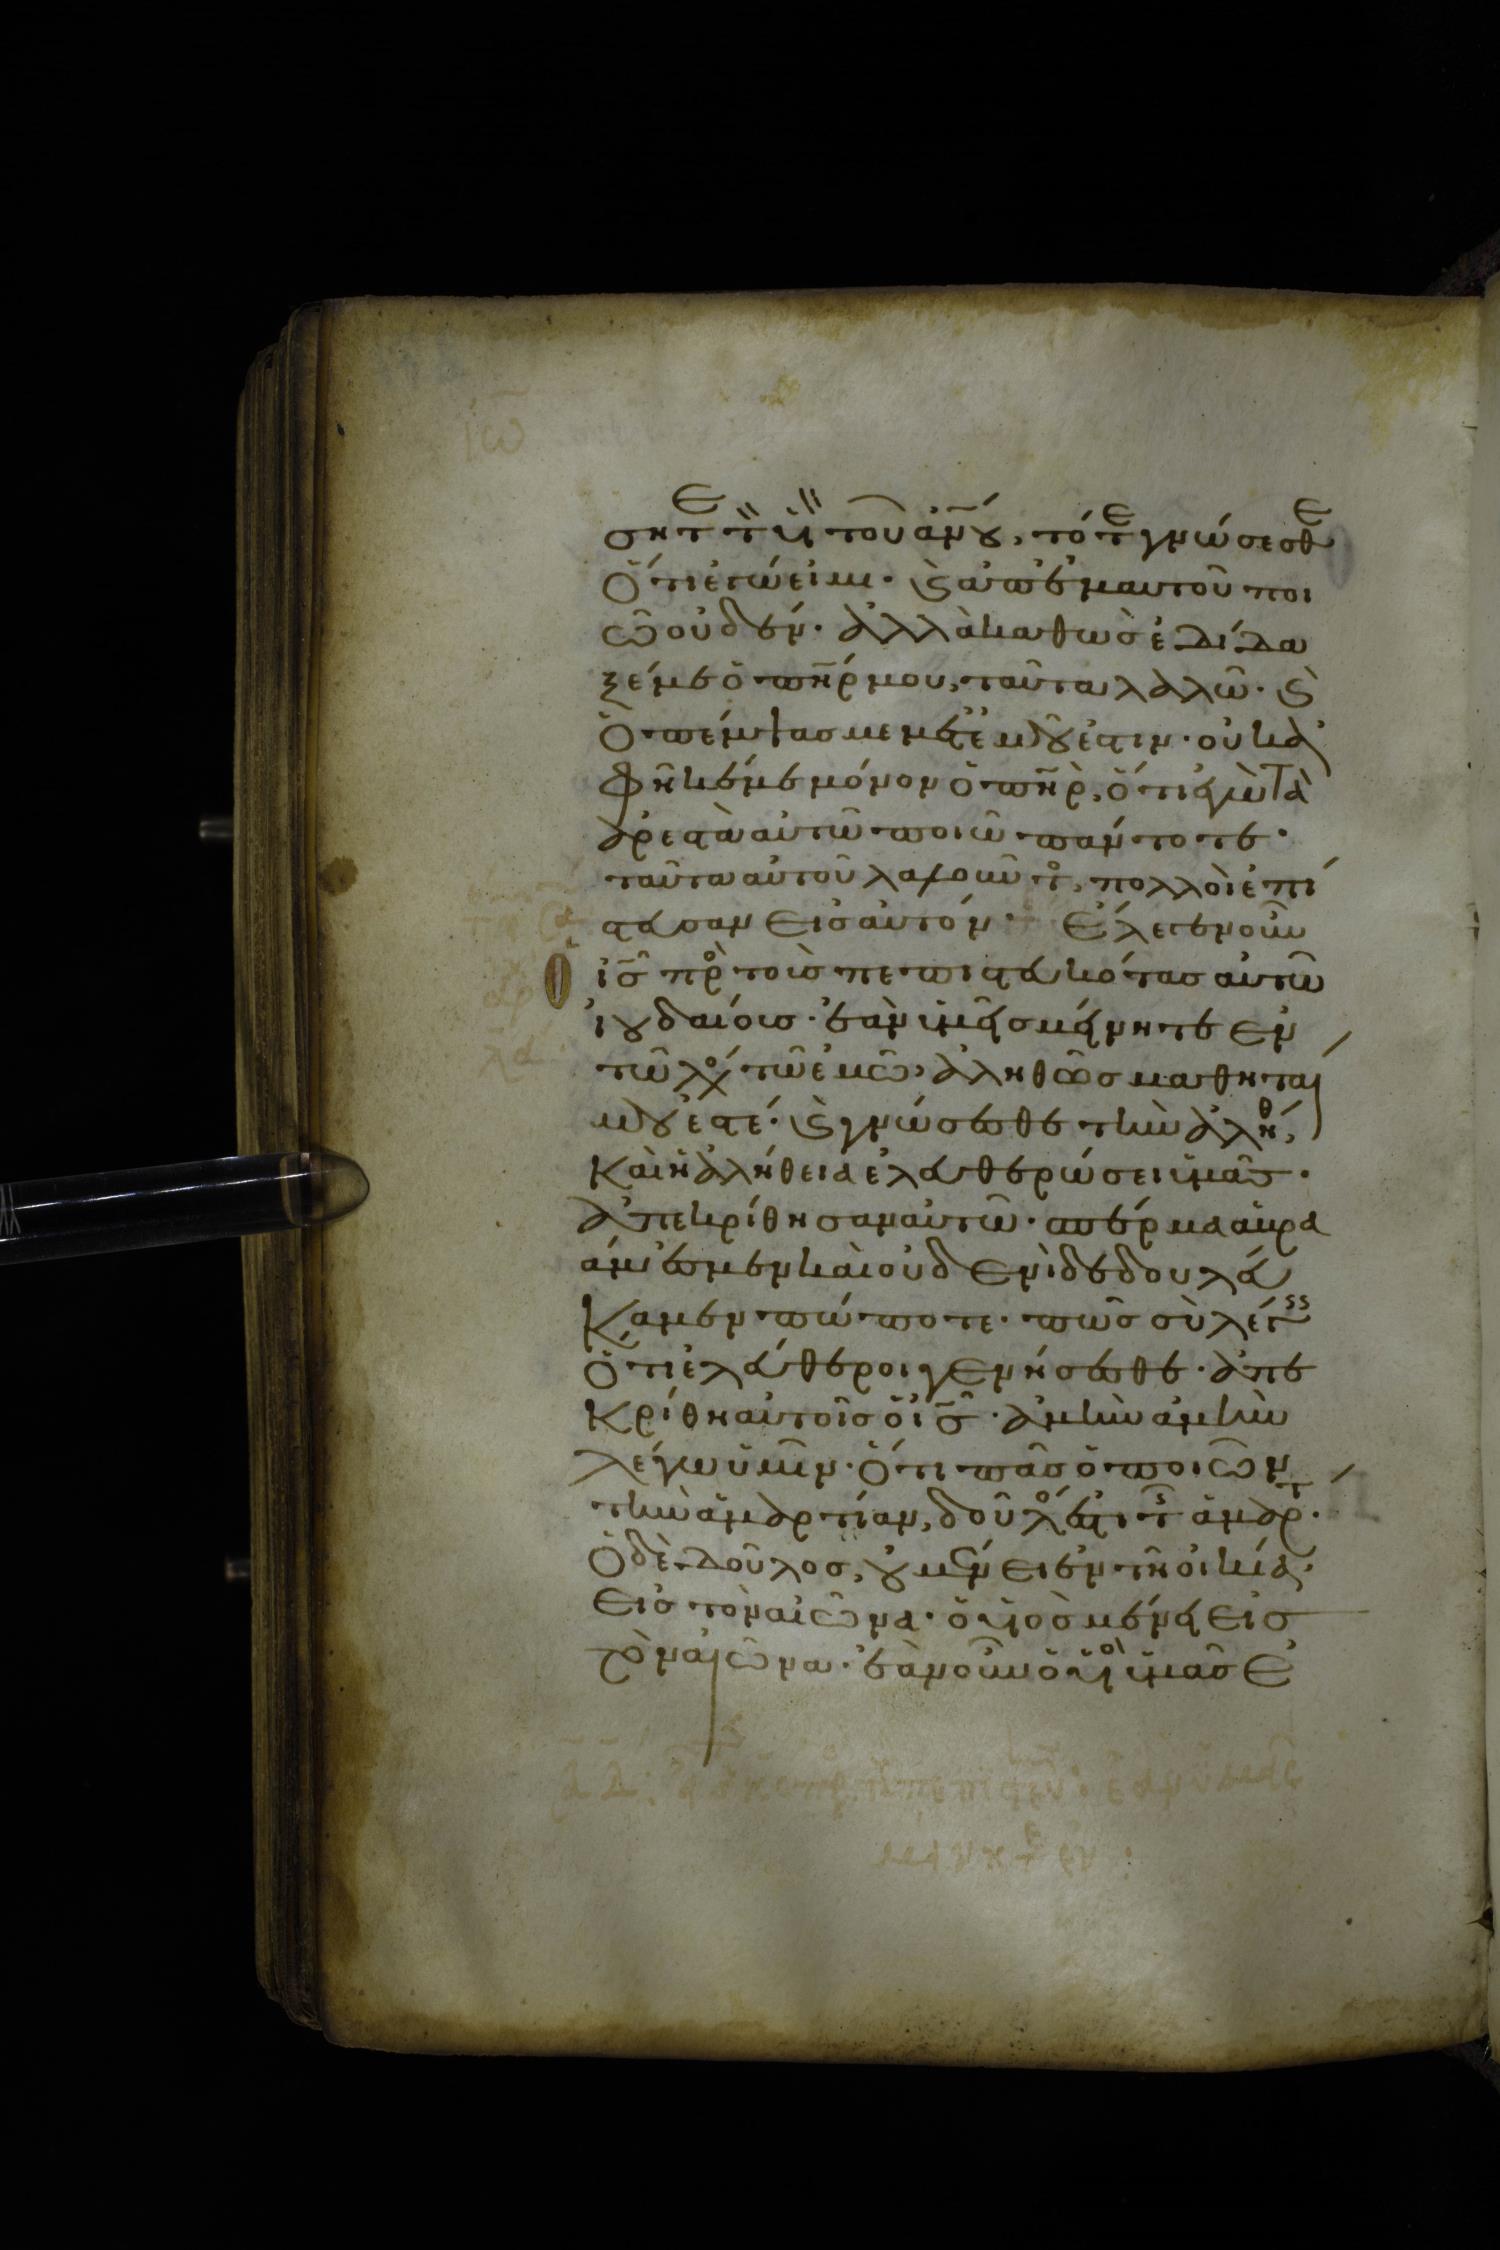 σητ τ υι του ανου, τότε γνώσεσθε
ὅτι ἐγώ εἰμι. καὶ ἀπ' ἐμαυτοῦ ποι
ῶ οὐδέν. ἀλλὰ καθὼς ἐδίδα
ξέ με ὁ πηρ μου, ταῦτα λαλῶ. καὶ
ὁ πέμψας με μετ' ἐμοῦ ἐστιν. οὐκ ἀ
φῆκέ με μόνον ὁ πηρ, ὅτι ἐγὼ τὰ
ἀρεστὰ αὐτῶ ποιῶ πάντοτε.
ταῦτα αὐτοῦ λαλοῦντος, πολλοὶ ἐπί
στευσαν εἰς αὐτόν. Ἔλεγεν οὖν
ὁ ις πρὸς τοὺς πεπιστευκότας αὐτῶ
ἰουδαίους. ἐὰν ὑμεῖς μείνητε ἐν
τῶ λόγω τῶ ἐμῶ, ἀληθῶς μαθηταί
μου ἐστέ. καὶ γνώσεσθε τὴν ἀλήθ,
καὶ ἡ ἀλήθεια ἐλευθερώσει ὑμᾶς.
ἀπεκρίθησαν αὐτῶ. σπέρμα ἀβρα
άμ ἐσμεν καὶ οὐδενὶ δεδουλεύ
καμεν πώποτε. πῶς σὺ λέγεις
ὅτι ἐλεύθεροι γενήσεσθε. ἀπε
κρίθη αὐτοῖς ὁ ις. ἀμὴν ἀμὴν
λέγω ὑμῖν. ὅτι πᾶς ὁ ποιῶν
τὴν ἁμαρτίαν, δοῦλός ἐστι τῆς ἁμαρτ.
ὁ δὲ δοῦλος, οὐ μένει ἐν τῆ οἰκία.
εἰς τὸν αἰῶνα. ὁ υἱὸς μένει εἰς
τὸν αἰῶνα. ἐὰν οὖν ὁ υἱὸς ὑμᾶς ἐ